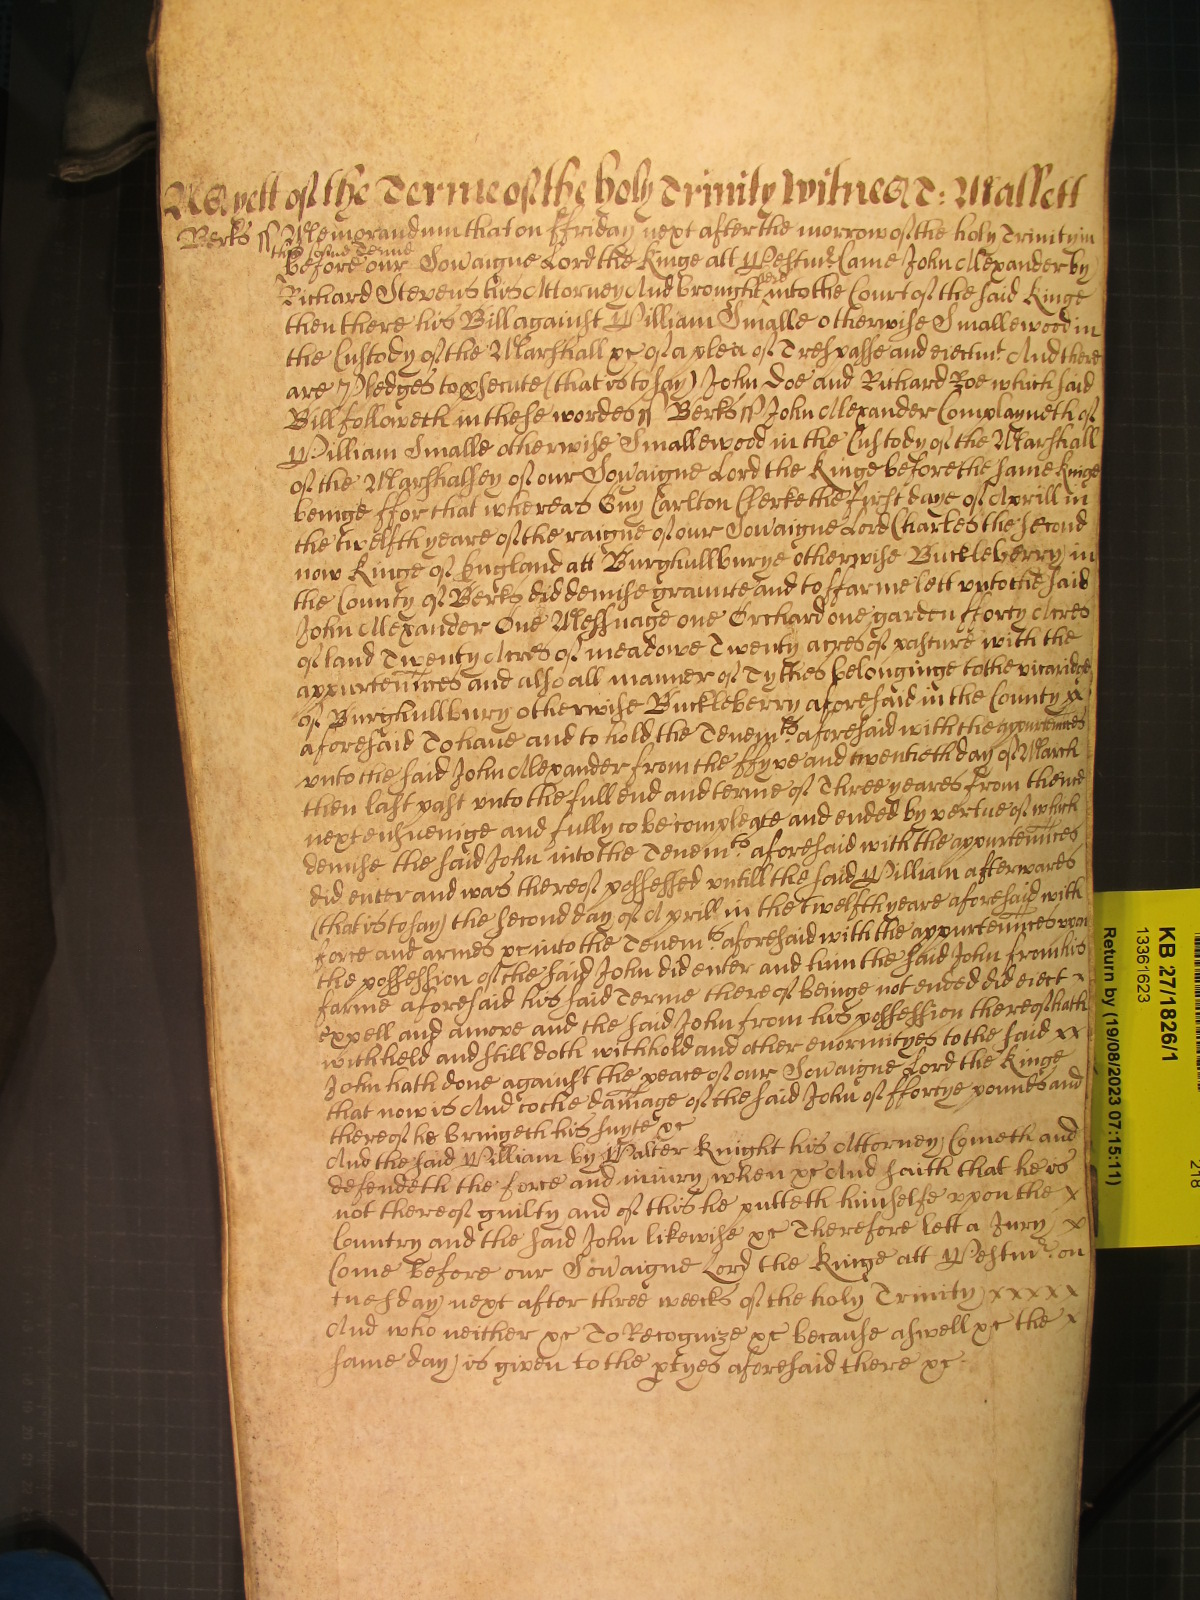 As yett of the Terme of the holy Trinity Witnes T: Mallett
Berks ss Memorandum that on ffriday next after the morrow of the holy Trinity in
this same Terme
before our Sovaigne Lord the Kinge att Westmr Came John Alexander by
Richard Stevens his Attorney And brought here into the Court of the said Kinge
then there his Bill against William Smalle otherwise Smallewood in
the Custody of the Marshall &c of a plea of Trespasse and eiectmt And there
are Pledges to psecute (that is to say) John Doe and Richard Roe which said
Bill followeth in these wordes ss Berks ss John Alexander Complayneth of
William Smalle otherwise Smallewood in the Custody of the Marshall
of the Marshalsey of our Sovaigne Lord the Kinge before the same Kinge
beinge ffor that whereas Guy Carlton Clerke the first daye of Aprill in
the twelfth yeare of the raigne of our Sovaigne Lord Charles the second
now Kinge of England att Burghullburye otherwise Buckleberry in
the County of Berks did demise graunte and to ffarme lett unto the said
John Alexander One Messuage one Orchard one garden fforty Acres
of land Twenty Acres of meadowe Twenty acres of pasture with the
appurtennces and also all manner of Tythes belonginge to the vicaridge
of Burghullbury otherwise Buckleberry aforesaid in the County xx
aforesaid To have and to hold the Tenemts aforesaid with the appurtennces
unto the said John Alexander from the ffyve and twentieth day of March
then last past unto the full end and terme of Three yeares from thence
next ensueinge and fully to be compleate and ended by vertue of which
demise the said John into the Tenemts aforesaid with the appurtennces
did enter and was thereof possessed untill the said William afterwards
(that is to say) the second day of Aprill in the twelfth yeare aforesaid with
force and armes &c into the Tenemts aforesaid with the appurtennces upon
the possession of the said John did enter and him the said John from his
farme aforesaid his said Terme thereof beinge not ended did eiect x
expell and amove and the said John from his possession thereof hath
withheld and still doth withhold and other enormityes to the said xx
John hath done against the peace of our Sovaigne Lord the Kinge
that now is And to the damage of the said John of ffortye pounds and
thereof he bringeth his suyte &c
And the said William by Walter Knight his Attorney Cometh and
defendeth the force and iniury when &c And saith that he is
not thereof guilty and of this he putteth himselfe upon the x
Country and the said John likewise &c Therefore lett a Jury x
Come before our Sovaigne Lord the Kinge att Westmr on
tuesday next after three weecks of the holy Trinity x x x x x
And who neither &c To Recognize &c because aswell &c the x
same day is given to the ptyes aforesaid there &c
KB 27/1826/1
13361623
Return by (19/08/2023 07:15:11)